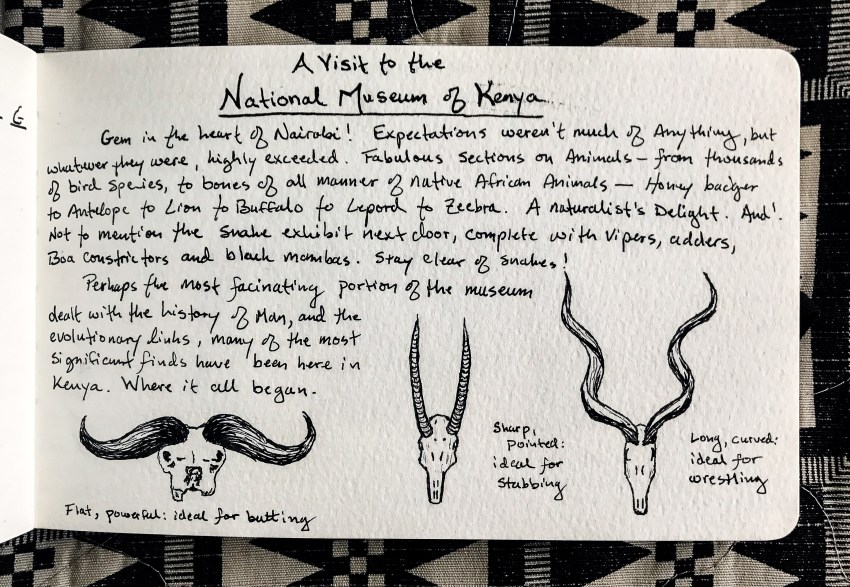 A Visit to the
National Museum of Kenya
Gem in the heart of Nairobi! Expectations weren't much of Anything, but
whatever they were, highly exceeded. Fabulous sections on Animals — from thousands
of bird species, to bones of all manner of native African Animals — Honey badger
to Antelope to Lion to Buffalo to Lepord to Zeebra. A naturalist's Delight. And!
Not to mention the snake exhibit next door, complete with Vipers, adders,
Boa Constrictors and black mambas. Stay clear of snakes!
Perhaps the most facinating portion of the museum
dealt with the history of Man, and the
evolutionary links, many of the most
significant finds have been here in
Kenya. Where it all began.
Flat, powerful: ideal for butting
Sharp,
pointed:
ideal for
Stabbing
Long, curved:
ideal for
wrestling